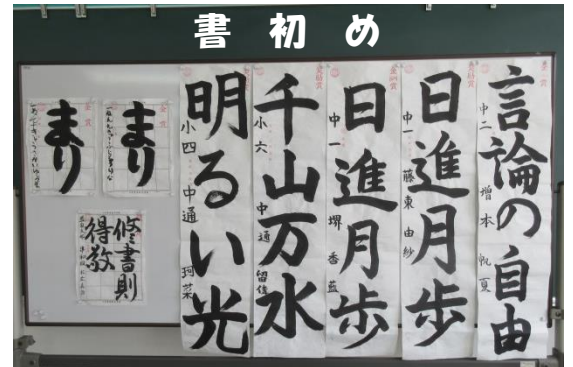 書初め
言論の自由
中二 増本 帆夏
日進月歩
中一 藤東 由紗
日進月歩
中一 堺 香藍
千山万水
小六 中通 留佳
明るい光
小四 中通 珂菜
まり
まり
修書則
得教